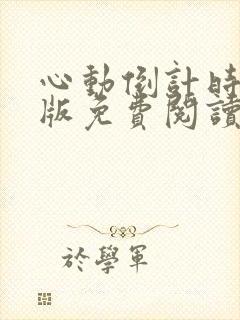 心動倒計時
版免費閱讀
於學軍